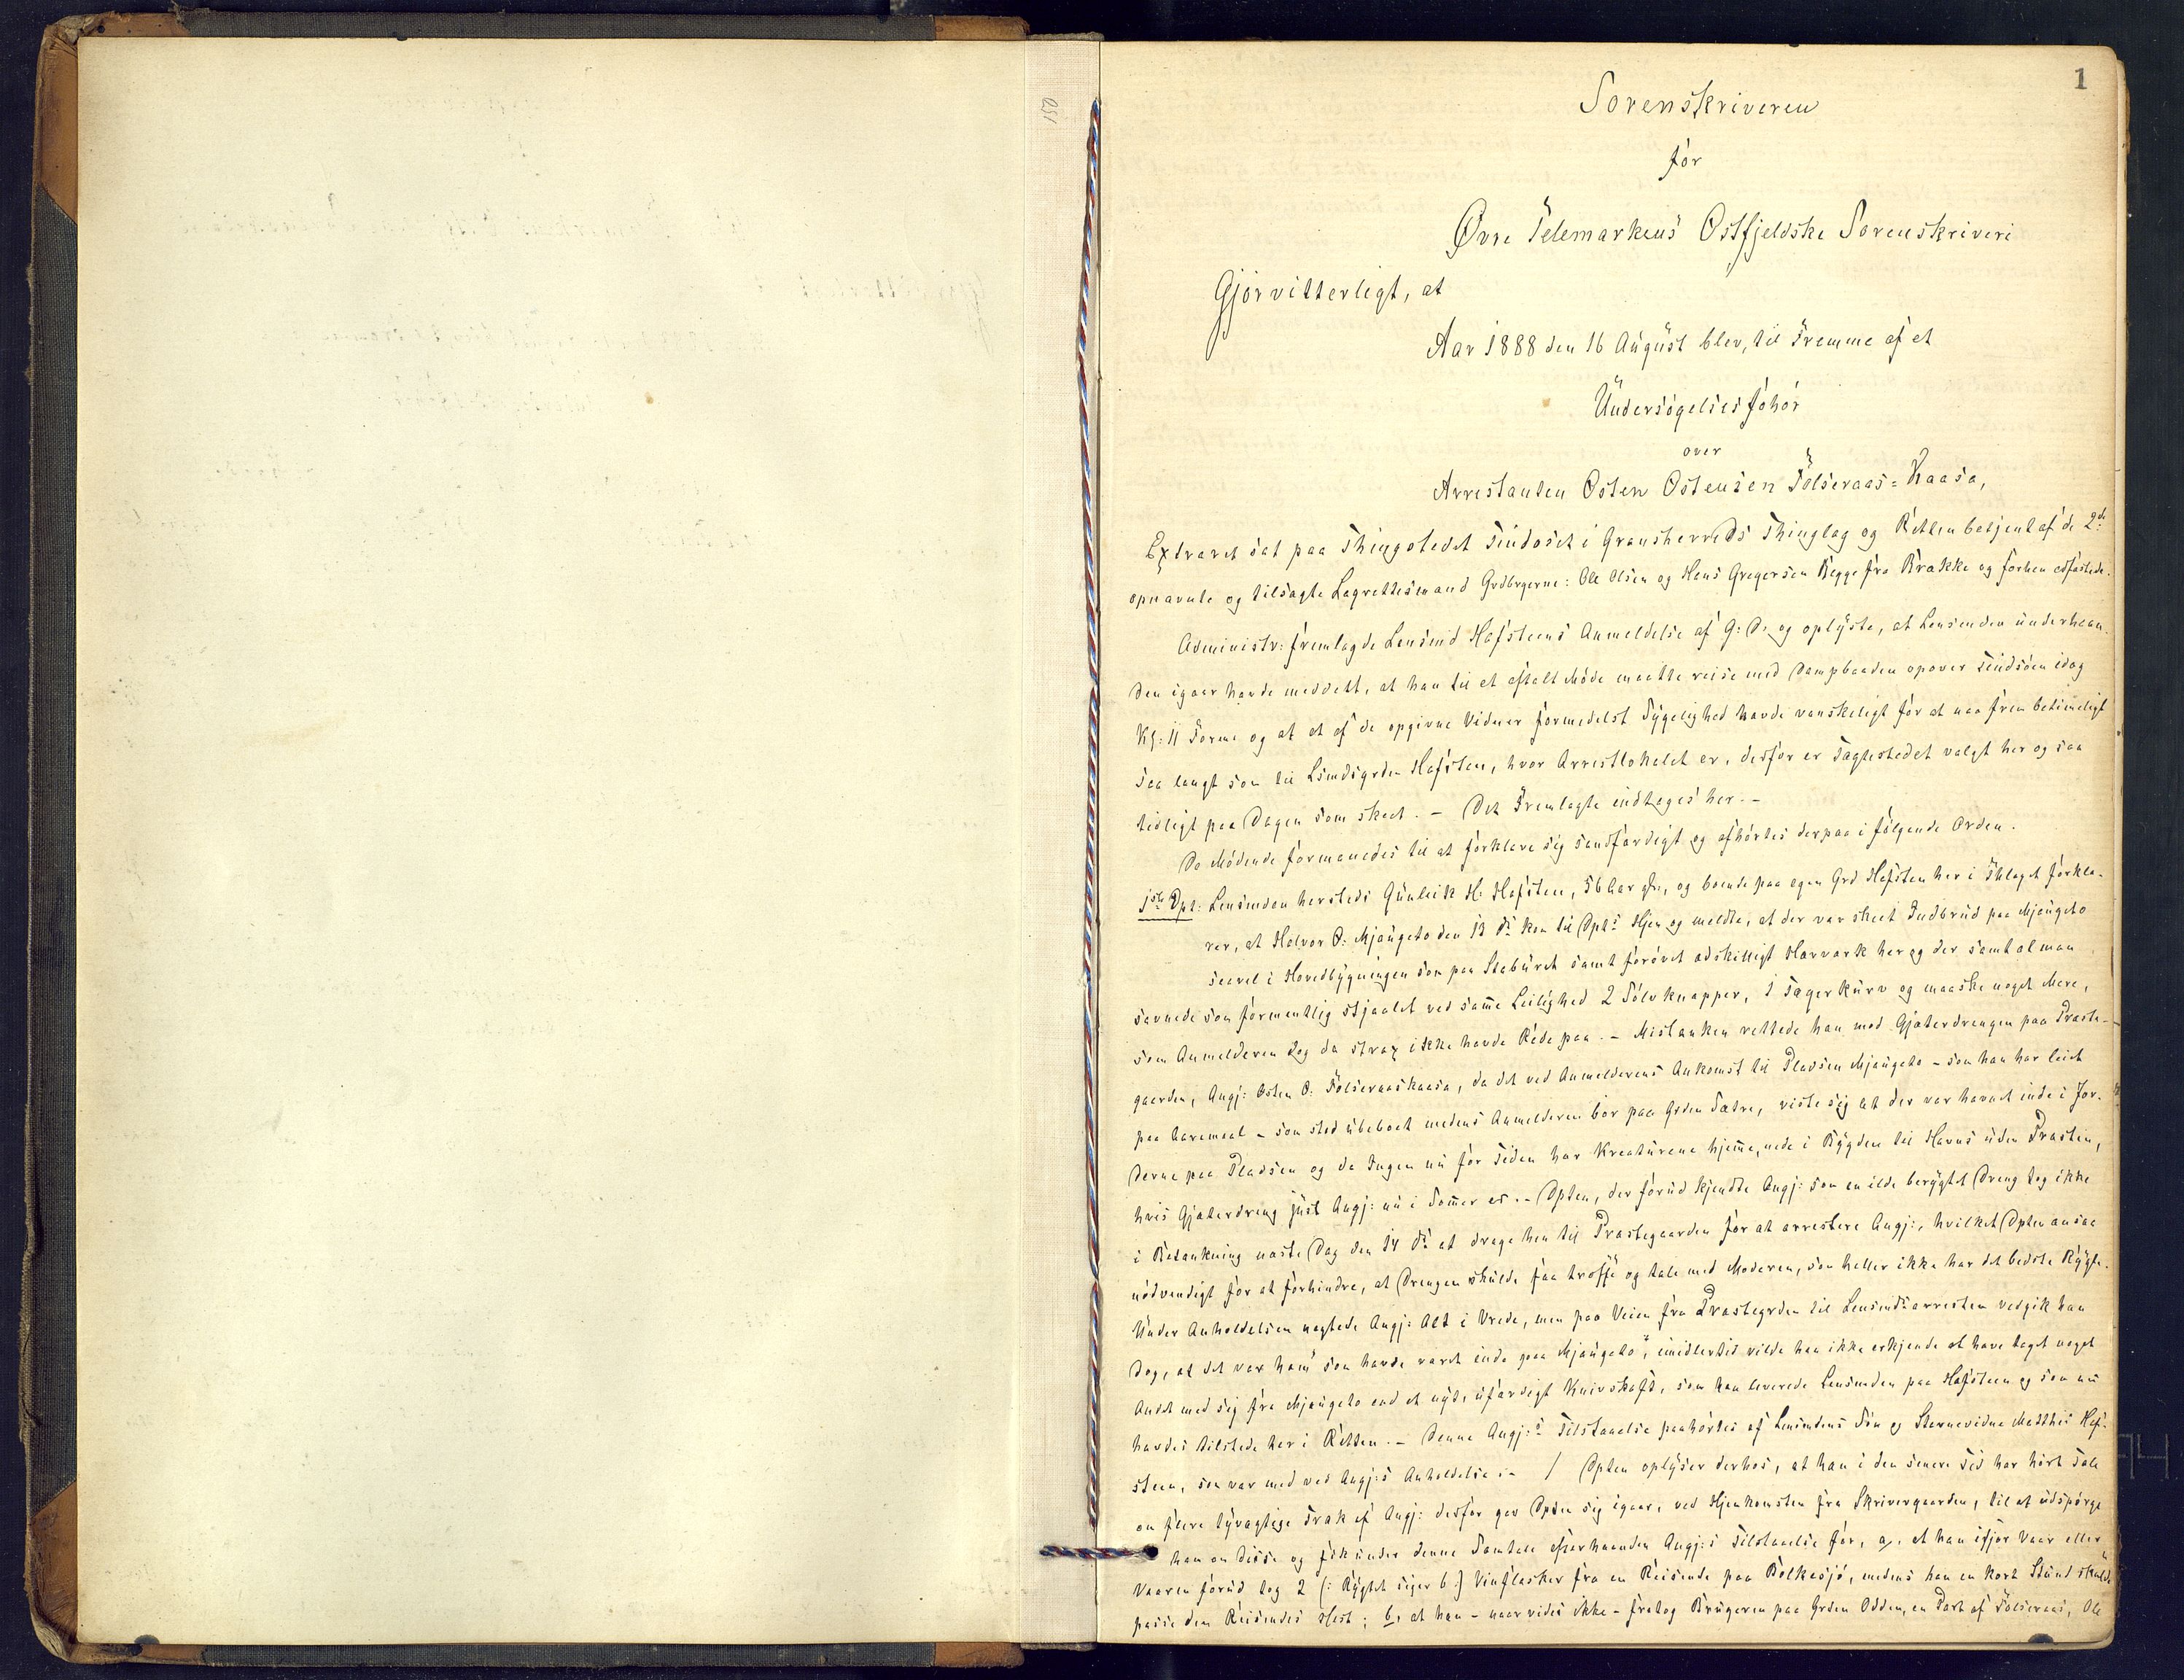 1
Sorenskriveren
for
Øvre Telemarkens Østfjeldske Sorenskriveri
Gjör vitterligt, at
Aar 1888 den 16 August blev, til Fremme af et
Undersögelsesforhör
over
Arrestanten Östen Östensen Fölseraas=Kaasa,
Extraret sat paa Thingstedet Tindoset i Gransherreds Thinglag og Retten betjent af de 2de
opnævnte og tilsagte Lagrettesmænd Grdbrgerne: Ole Olsen og Hans Gregersen Begge fra Brække og forhen edfæstede.
Administr: fremlagde Lensmd Hafsteens Anmeldelse af G: D: og oplyste, at Lensmden underhaan-
den igaar havde meddelt, at han til et aftalt Möde maatte reise med Dampbaaden opover Tindsöen idag
Kl: 11 Form og at et af de opgivne Vidner formedelst Sygelighed havde vanskeligt for at naa frem betimeligt
saa langt som til Lsmdsgrden Hafsten, hvor Arrestlokalet er, derfor er Tægtestedet valgt her og saa
tidligt paa Dagen som skeet. – Det Fremlagte indtages her. –
De Mödende formanedes til at forklare sig sandfærdigt og afhörtes derpaa i fölgende Orden.
1ste Dpt: Lensmden hersteds Gunleik H: Hafsten, 56 Aar gl:, og boende paa egen Grd Hafsten her i Thlaget forkla-
rer, at Halvor O: Mjaugeto den 13 ds kom til Dpts Hjem og meldte, at der var skeet Indbrud paa Mjaugeto
saavel i Hovedbygningen som paa Stabûret samt forövet adskilligt Hærværk her og der samt at man
savnede som formentlig stjaalet ved samme Leilighed 2 Sölvknapper, 1 Tægerkurv og maaske noget Mere,
som Anmelderen dog da strax ikke havde Rede paa. – Mistanken rettede han mod Gjæterdrengen paa Præste-
gaarden, Angj: Östen Ö. Fölseraaskaasa, da det ved Anmelderens Ankomst til Pladsen Mjaugeto – som han har leiet
paa Aaremaal – som stod ubeboet medens Anmelderen bor paa Grden Sætre, viste sig at der var havnet inde i Jor-
derne paa Pladsen og da Ingen nu for Tiden har Kreaturene hjemme, nede i Bygden til Havns uden Præsten,
hvis Gjæterdreng just Angj: nu i Sommer er. – Dpten, der forud kjendte Angj: som en ilde berygtet Dreng tog ikke
i Betænkning næste Dag den 14 ds at drage hen til Præstegaarden for at arrestere Angj:, hvilket Dpten ansaa
nödvendigt for at forhindre, at Drengen skulde faa træffe og tale med Moderen, som heller ikke har det bedste Rygte.
Under Anholdelsen nægtede Angj: Alt i Vrede, men paa Veien fra Præstegrden til Lensmdsarresten vedgik han
dog, at det var ham "som havde været inde paa Mjaugeto", imidlertid vilde han ikke erkjende at have taget noget
Andet med sig fra Mjaugeto end et nyt, ufærdigt Knivskaft, som han leverede Lensmden paa Hafsteen og som nu
havdes tilstede her i Retten. – Denne Angj:s Tilstaaelse paahörtes af Lensmdens Sön og Stævnevidne Matthis Haf-
steen, som var med ved Angj:s Anholdelse. – / Dpten oplyser derhos, at han i den senere Tid har hört Tale
om flere tyvagtige Træk af Angj: derfor gav Dpten sig igaar, ved Hjemkomsten fra Skrivergaarden, til at udspörge
ham om disse og fik under denne Samtale efterhaanden Angj:s Tilstaaelse for, a, at han ifjor Vaar eller
Vaaren forud tog 2 (: Rygtet siger 6 :) Vinflasker fra en Reisende paa Bolkesjö, medens han en kort Stund skulde
passe den Reisendes Hest; b, at han – naar vides ikke – fratog Brugeren paa Grden Odden, en Part af Fölseraas, Ole